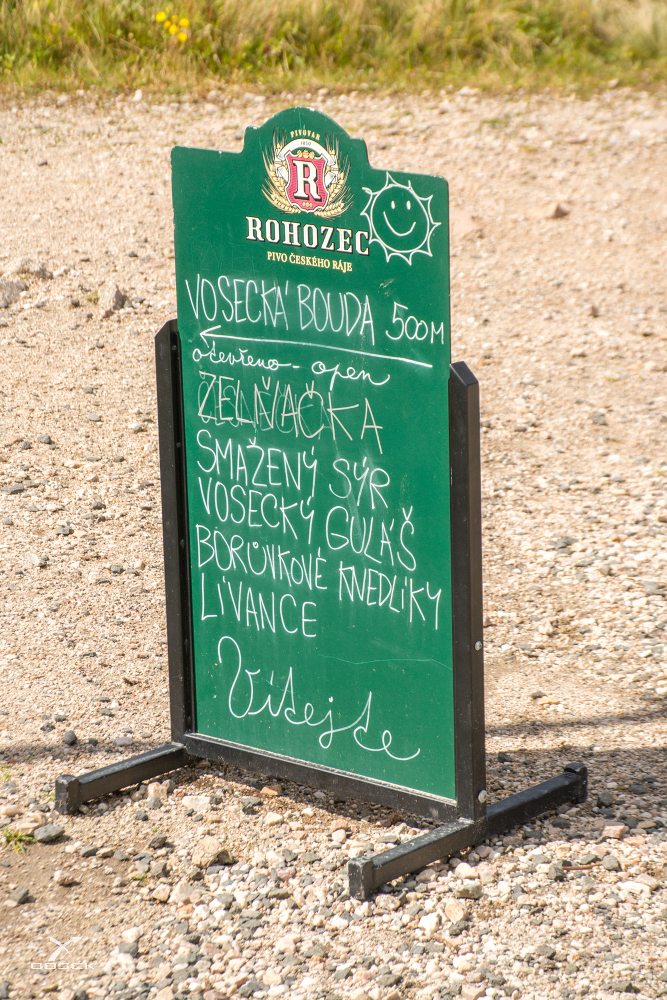 PIVOVAR
1850
R
ROHOZEC
PIVO ČESKÉHO RÁJE
VOSECKÁ BOUDA 500M
otevřeno - open
ZELŇAČKA
SMAŽENÝ SÝR
VOSECKÝ GULÁŠ
BORŮVKOVÉ KNEDLÍKY
LÍVANCE
Vítejte